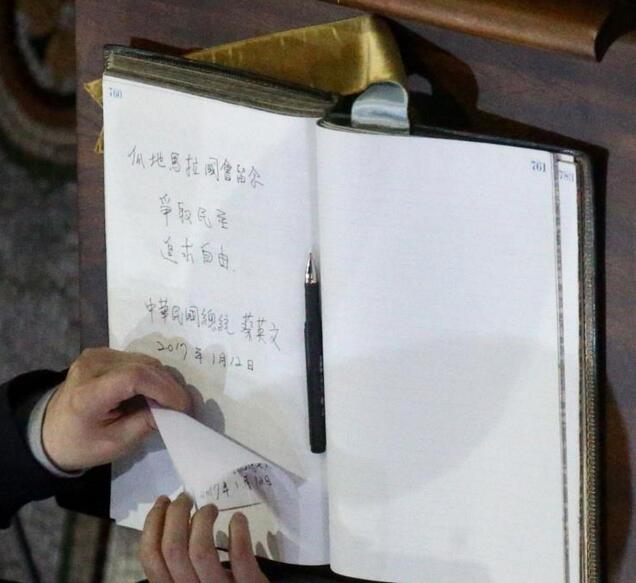 760
瓜地馬拉國會留念
爭取民主
追求自由.
中華民國總統 蔡英文
2017年1月12日
2017年1月12日
761
783